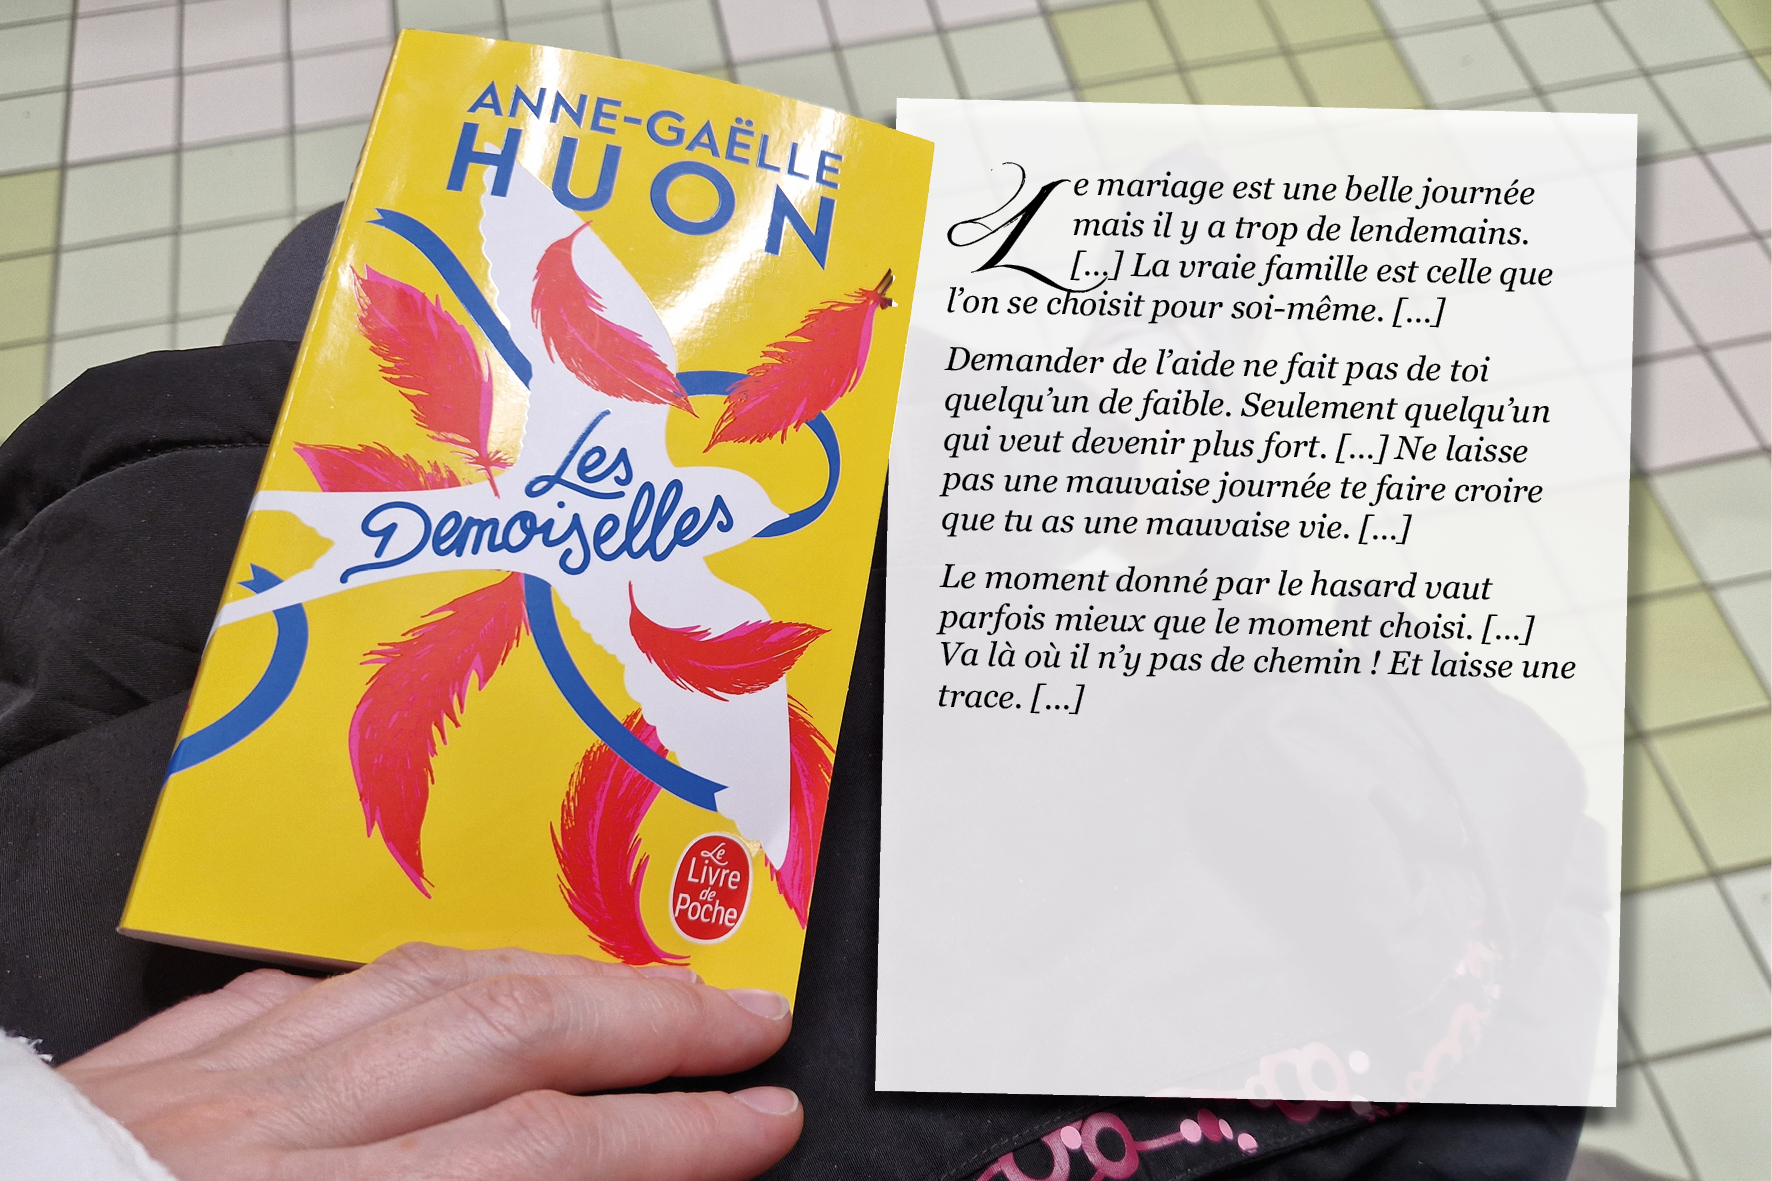 ANNE-GAËLLE
HUON
Les
Demoiselles
Le
Livre
de
Poche
Le mariage est une belle journée
mais il y a trop de lendemains.
[...] La vraie famille est celle que
l’on se choisit pour soi-même. [...]
Demander de l’aide ne fait pas de toi
quelqu’un de faible. Seulement quelqu’un
qui veut devenir plus fort. [...] Ne laisse
pas une mauvaise journée te faire croire
que tu as une mauvaise vie. [...]
Le moment donné par le hasard vaut
parfois mieux que le moment choisi. [...]
Va là où il n’y pas de chemin ! Et laisse une
trace. [...]